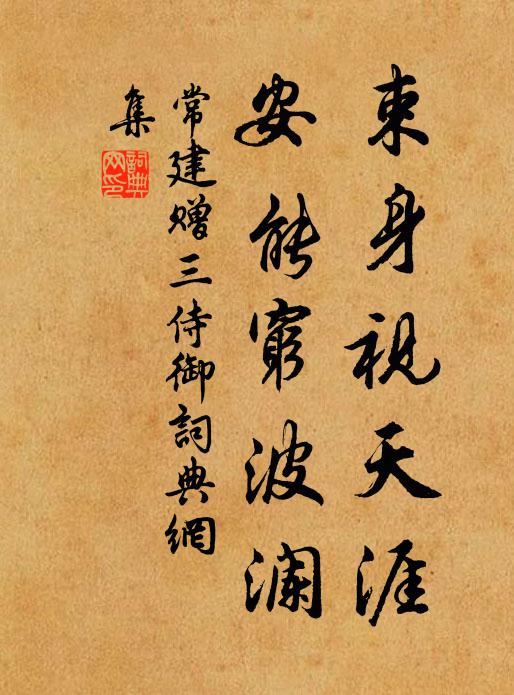 束身视天涯
安能窮波澜
常建赠三侍御詞典網
集
詞典網印